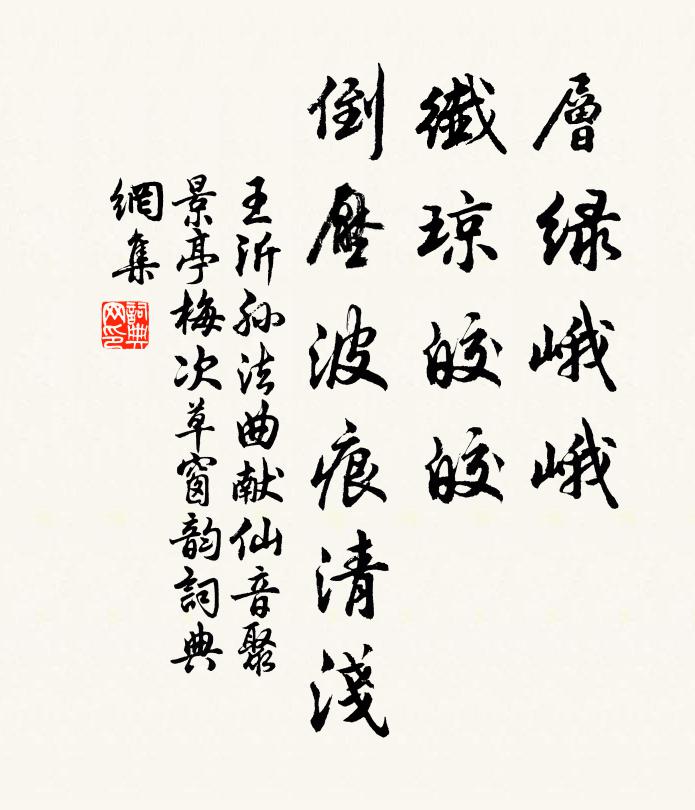 層緑峨峨
纖琼皎皎
倒壓波痕清淺
王沂孙法曲献仙音聚
景亭梅次草窗韵詞典
網集
詞典网印